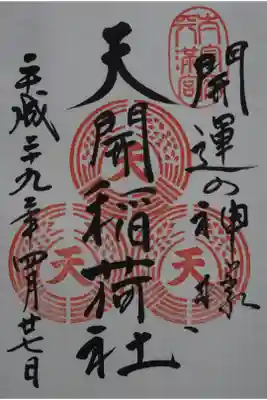 太宰府
天満宮
開運の神様
天開稲荷社
平成二十九年四月廿七日
天
天
天